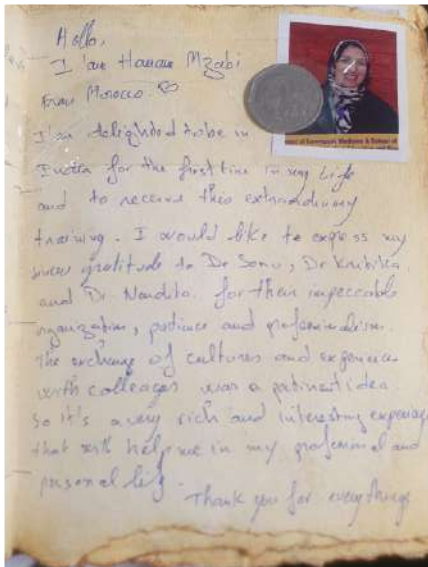 Hello,
I'am Hanane Mzabi
From Morocco.
I'm delighted to be in
India for the first time in my life
and to receive this extraordinary
training. I would like to express my
sincere gratitude to Dr Sonu, Dr Kritika
and Dr. Nandita. for their impeccable
organization, patience and professionalism.
The exchange of cultures and experiences
with colleages was a patinent idea.
So it's a very rich and interesting experience
that will help me in my professional and
personal life.
Thank you for everythings
Medicine & School of